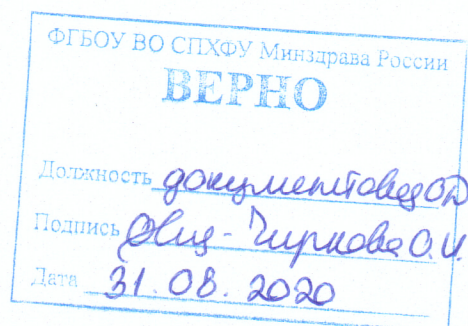 ФГБОУ ВО СПХФУ Минздрава России
ВЕРНО
Должность документовед ОД
Подпись Чиркова О.И.
Дата 31.08.2020